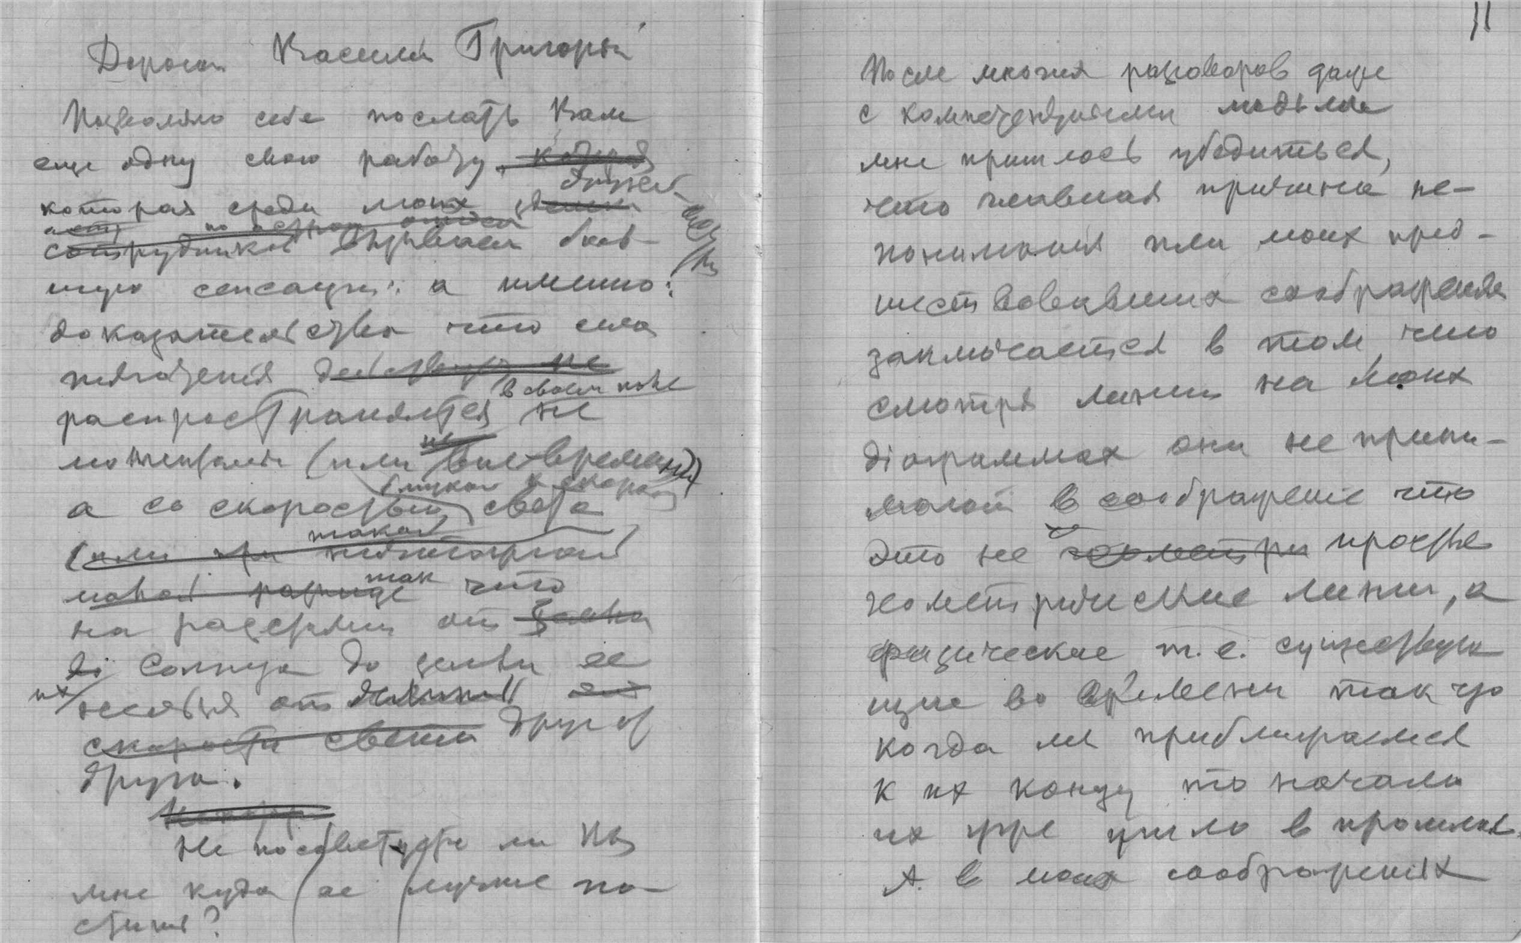 Дорогой Василий Григорьев
Позволяю себе послать Вам
еще одну свою работу,
которая среди моих
сотрудников вызывает боль-
шую сенсацию: а именно:
доказательство что сила
тяготения действует не
распространяется в своем поле не
моментально (или вне времени)
а со скоростью света
(или при такой
так что
на расстоянии от
до Солнца до земли ее
скорости света друг от
друга.
Не посоветуете ли Вы
мне куда ее лучше по-
слать?
11
После многих разговоров даже
с компетентными людьми
мне пришлось убедиться,
что главная причина не-
понимания ими моих пред-
шествовавших соображения
заключается в том, что
смотря линии на моих
діаграммах они не прини-
мают в соображение что
это не геометри просты
геометрические линии, а
физические т.е. существую
щие во времени так что
когда мы приближаемся
к их концу то начало
их уже ушло в прошлое.
А в моих соображениях